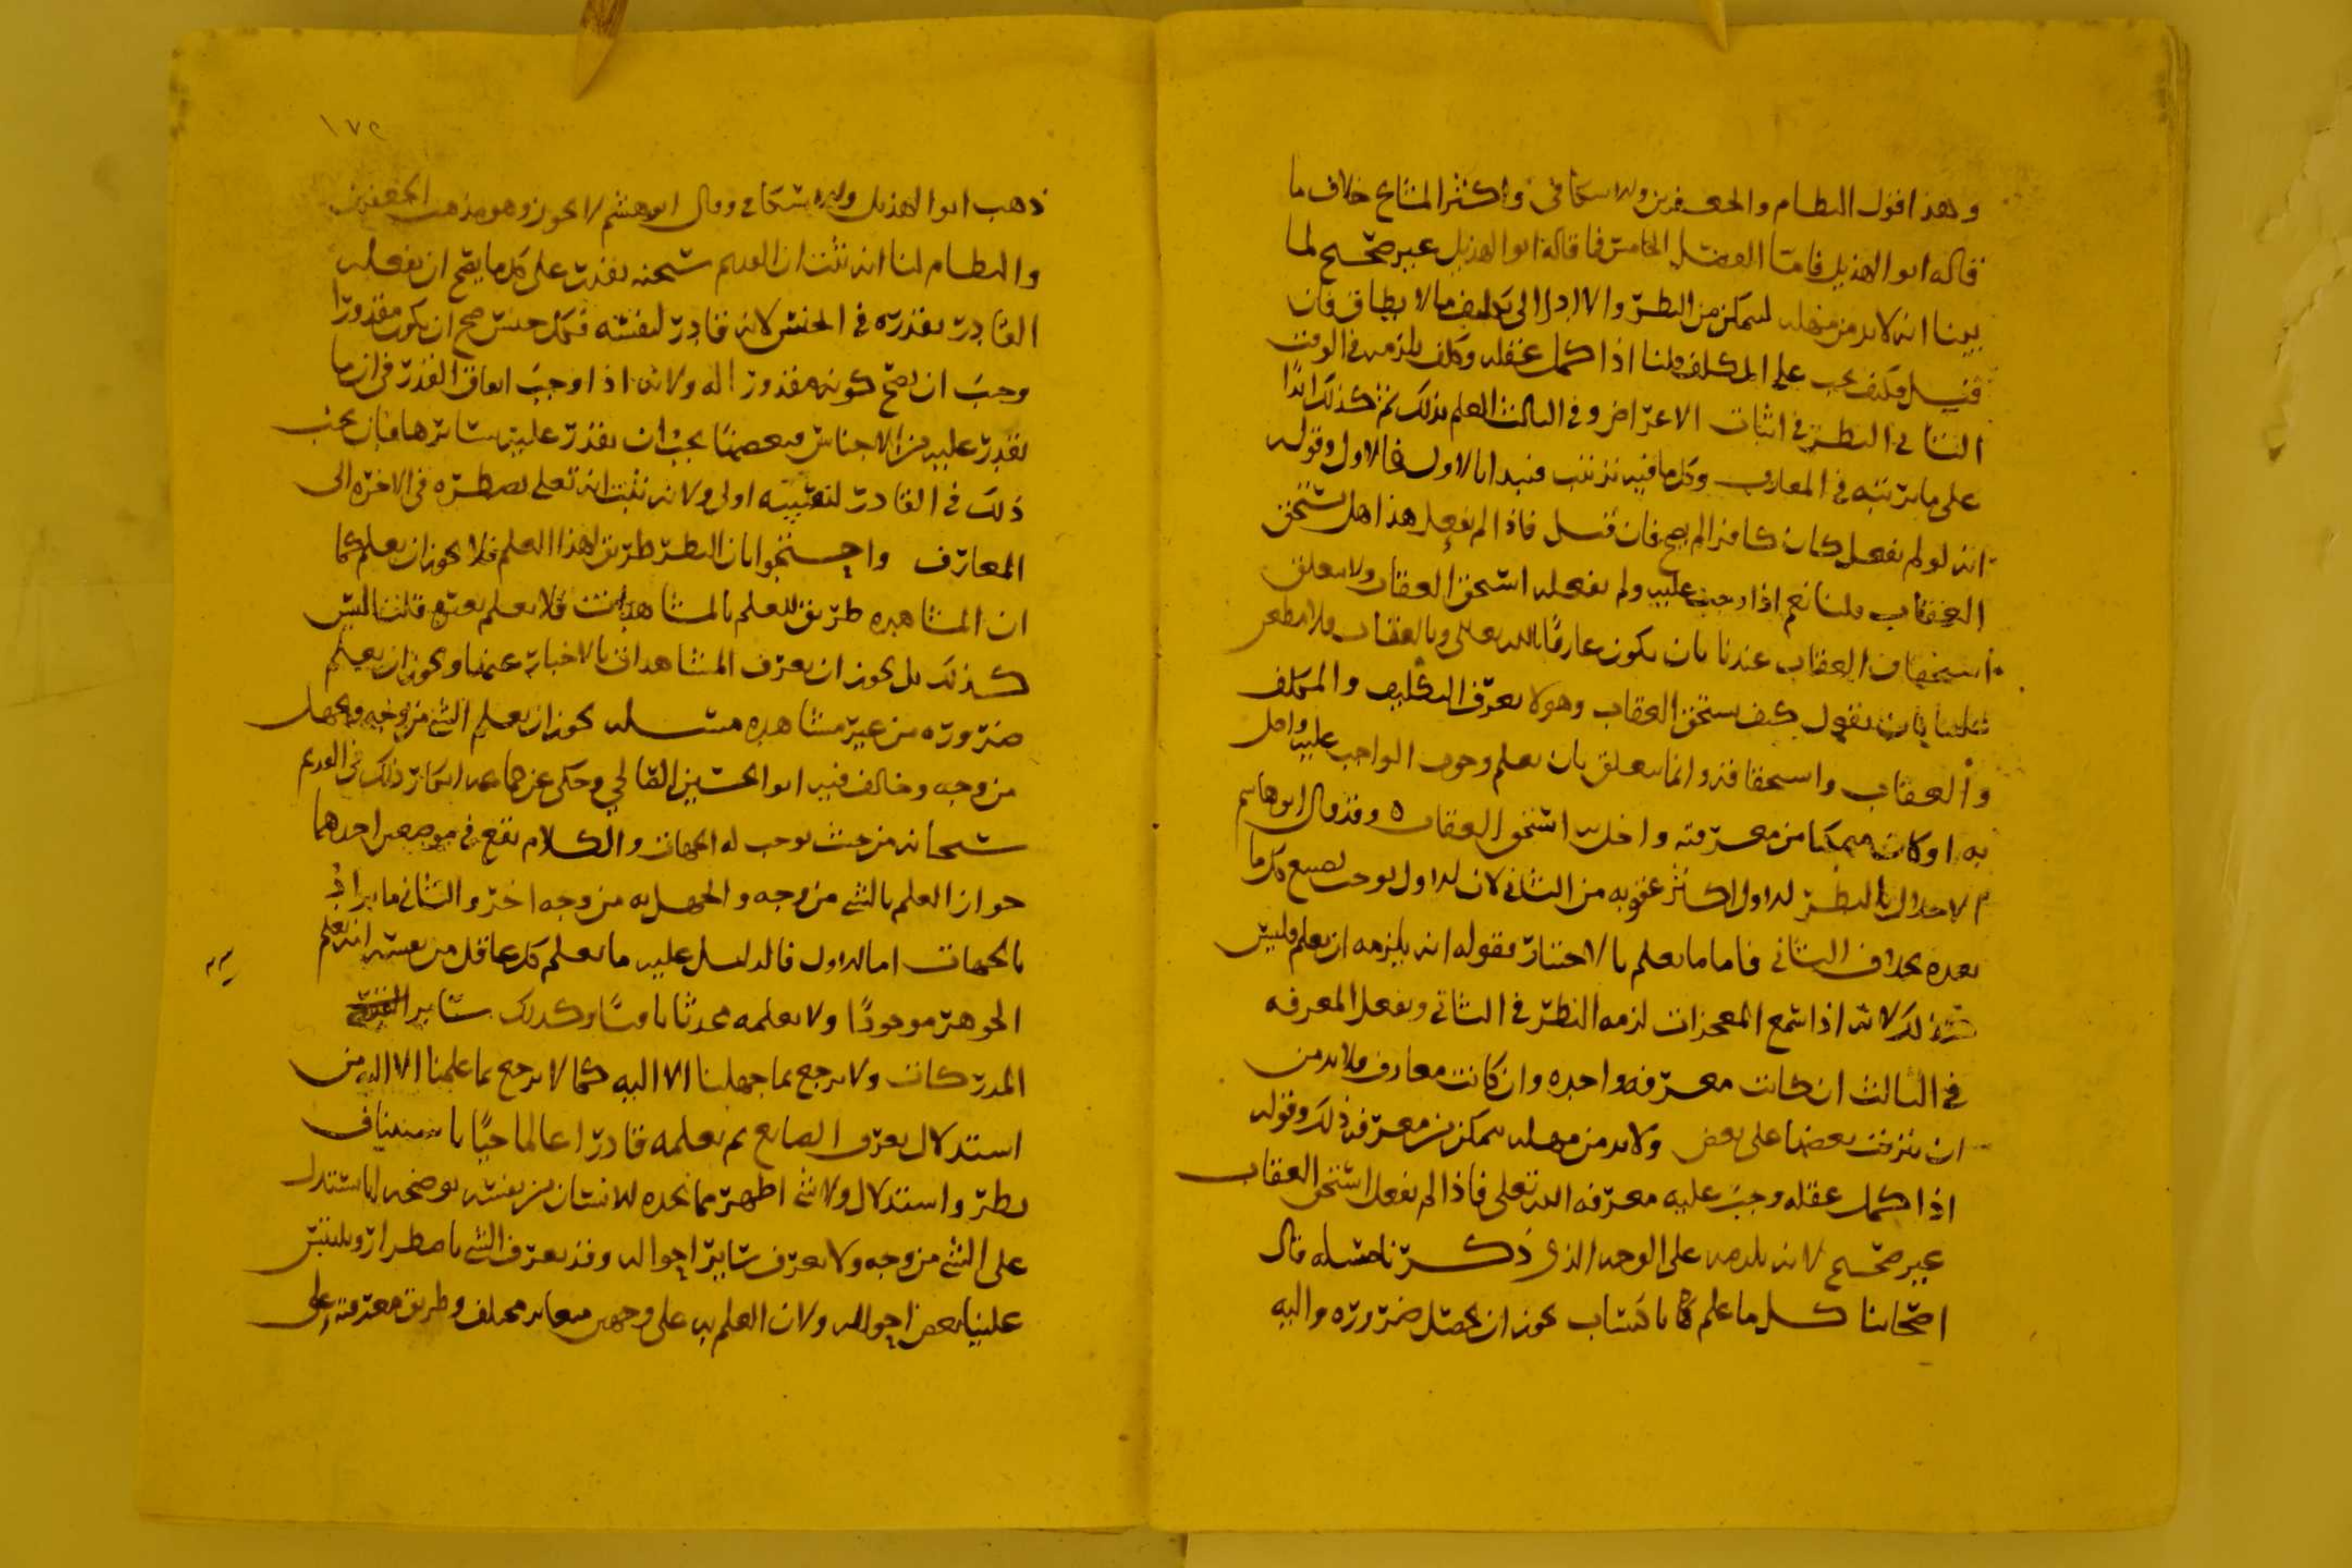 وهذا قول النظام والجعفرين والاسكافي واكثر المشايخ خلاف ما
قاله ابو الهذيل فاما الفصل الخامس فما قاله ابو الهذيل غير صحيح لما
بينا انه لا بد من مهله ليتمكن من النظر والا ادا الى تكليف ما لا يطاق فان
قيل فكيف يجب على المكلف قلنا اذا كمل عقله وكلف يلزمه في الوقت
الثاني النظر في اثبات الاعراض وفي الثالث العلم بذلك ثم كذلك ابدا
على ما يرتبه في المعارف وكل ما فيه ترتيب فيبدا بالاول فالاول وقوله
انه لو لم يفعل كان كافرا لم يصح فان قيل فاذا لم يفعل هذا هل يستحق
العقاب قلنا نعم اذا وجب عليه ولم يفعله استحق العقاب ولا يتعلق
استحقاق العقاب عندنا بان يكون عارفا بالله تعالى وبالعقاب فلا مطعن
علينا بان يقول كيف يستحق العقاب وهو لا يعرف التكليف والمكلف
والعقاب واستحقاقه وانما يتعلق بان يعلم وجوب الواجب عليه واخل
به او كان متمكنا من معرفته واخل به استحق العقاب ه وقد قال ابو هاشم
الاخلال بالنظر الاول اكثر عقوبه من الثاني لان الاول يوجب تضييع كل ما
بعده بخلاف الثاني فاما ما يعلم بالاختبار فقوله انه يلزمه ان يعلم فليس
كذلك لانه اذا سمع المعجزات لزمه النظر في الثاني ويفعل المعرفه
في الثالث ان كانت معرفه واحده وان كانت معارف فلا بد من
ان يترتب بعضها على بعض ولا بد من مهله يتمكن من معرفه ذلك وقوله
اذا كمل عقله وجب عليه معرفه الله تعالى فاذا لم يفعل استحق العقاب
غير صحيح لانه يلزمه على الوجه الذي ذكرنا مسله قال
اصحابنا كل ما علم باكتساب يجوز ان يحصل ضروره واليه
١٧٢
ذهب ابو الهذيل والاسكافي وقال ابو هشم لا يجوز وهو مذهب الجعفرين
والنظام لنا انه ثبت ان القديم سبحنه يقدر على كل ما يصح ان يفعله
القادر بقدره في الجنس لانه قادر لنفسه فكل جنس صح ان يكون مقدورا
وجب ان يصح كونه مقدورا له ولانه اذا وجب اتفاق القدر في ان ما
يقدر عليه من الاجناس ببعضها يجب ان يقدر عليه بسائرها فبان يجب
ذلك في القادر لنفسه اولى ولانه ثبت انه تعلى يضطره في الاخره الى
المعارف واحتجوا بان النظر طريق لهذا العلم فلا يجوز ان يعلم كما
ان المشاهده طريق للعلم بالمشاهدات فلا يعلم بغيره قلنا ليس
كذلك بل يجوز ان يعرف المشاهدات بالاخبار عنها ويجوز ان يعلم
ضروره من غير مشاهده مسله يجوز ان يعلم الشي من وجه ويجهل
من وجه وخالف فيه ابو الحسين الصالحي وحكى عن انكار ذلك في القديم
سبحانه من حيث يوجب له الجهات والكلام يقع في موضعين احدهما
جواز العلم بالشي من وجه والجهل به من وجه اخر والثاني ما يراد
بالجهات اما الاول فالدليل عليه ما يعلم كل عاقل من نفسه انه يعلم
الجوهر موجودا ولا يعلمه محدثا باقيا وكذلك سائر
المدركات ولا يرجع بما جهلنا الا اليه كما لا يرجع بما علمنا الا اليه من
استدلال يعرف الصانع ثم يعلمه قادرا عالما حيا باستيناف
نظر واستدلال ولا شي اظهر مما يجده الانسان من نفسه يوضحه انا نستدل
على الشي من وجه ولا يعرف سائر احواله وقد يعرف الشي باضطرار ويلتبس
علينا بعض احواله ولان العلم به على وجهين متغاير مختلف وطريق معرفته على